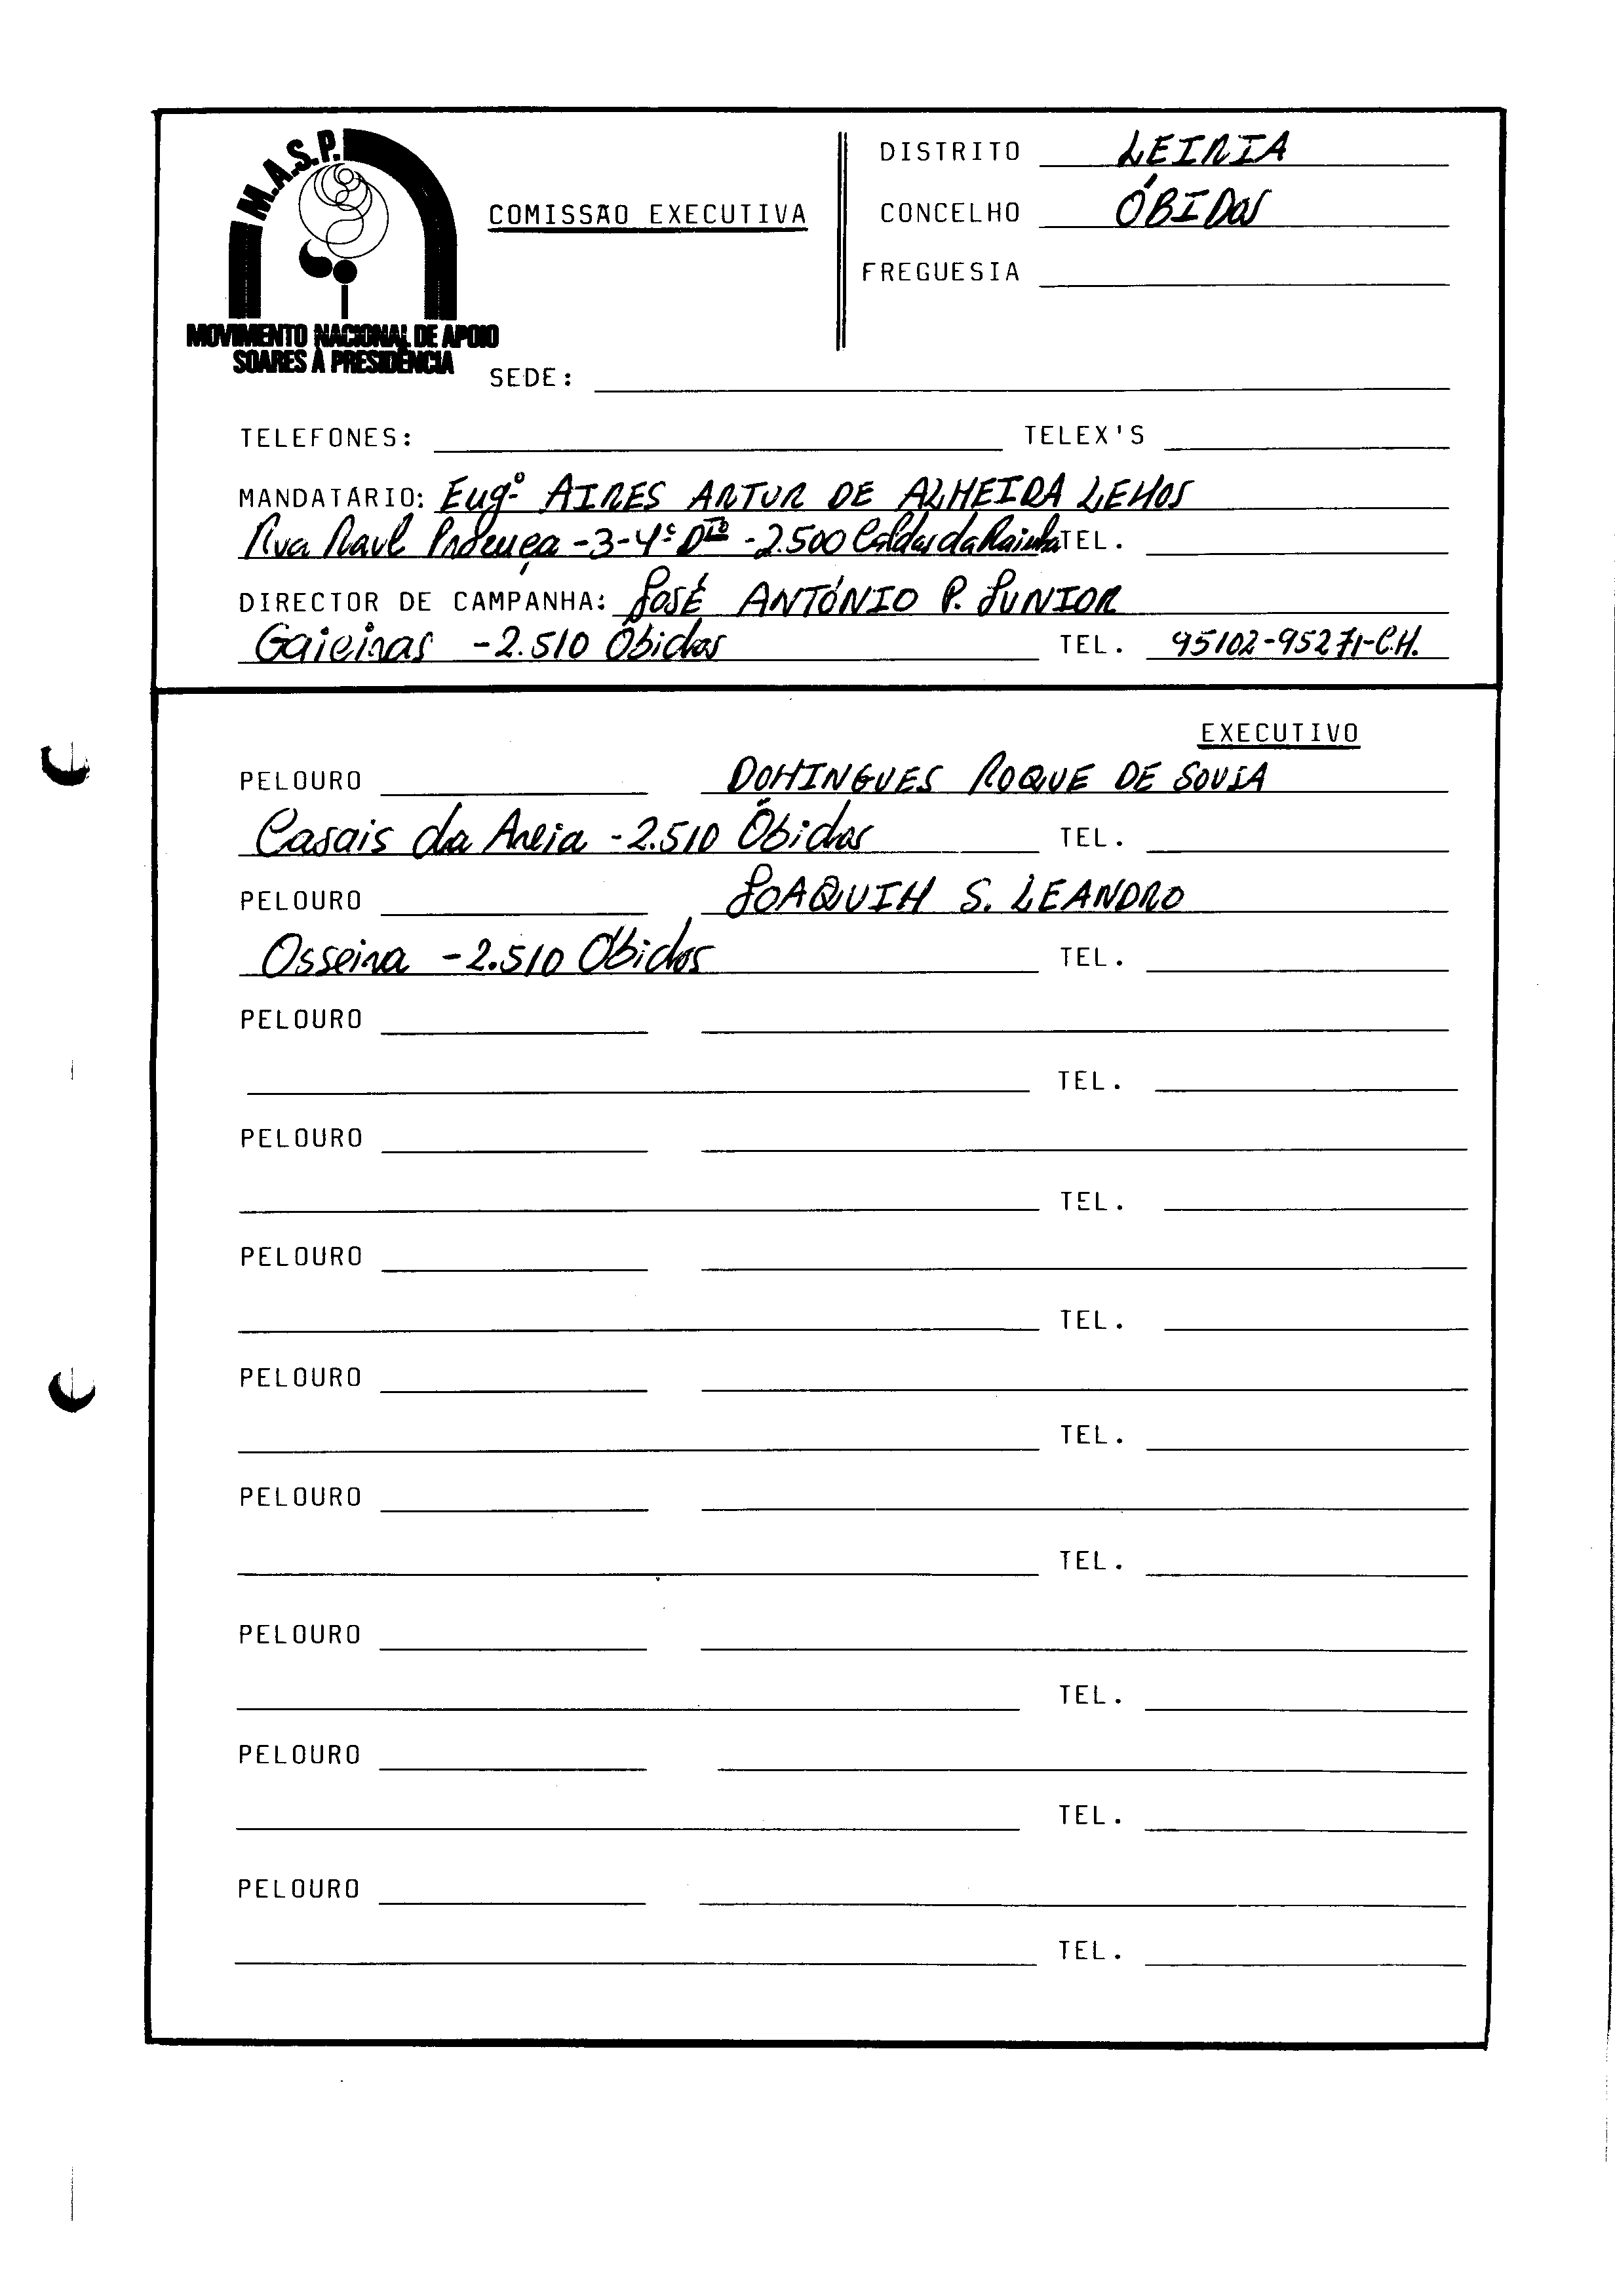 M.A.S.P.
MOVIMENTO NACIONAL DE APOIO
SOARES À PRESIDÊNCIA
COMISSÃO EXECUTIVA
DISTRITO LEIRIA
CONCELHO ÓBIDOS
FREGUESIA
SEDE:
TELEFONES: TELEX'S
MANDATÁRIO: Engº AIRES ARTUR DE ALMEIDA LEMOS
Rua Raul Proença - 3 - 4º Dtº - 2.500 Caldas da Rainha TEL.
DIRECTOR DE CAMPANHA: JOSÉ ANTÓNIO P. JUNIOR
Gaieiras - 2.510 Óbidos TEL. 95102-95271-C.H.
EXECUTIVO
PELOURO DOMINGUES ROQUE DE SOUSA
Casais da Areia - 2.510 Óbidos TEL.
PELOURO JOAQUIM S. LEANDRO
Osseira - 2.510 Óbidos TEL.
PELOURO
TEL.
PELOURO
TEL.
PELOURO
TEL.
PELOURO
TEL.
PELOURO
TEL.
PELOURO
TEL.
PELOURO
TEL.
PELOURO
TEL.